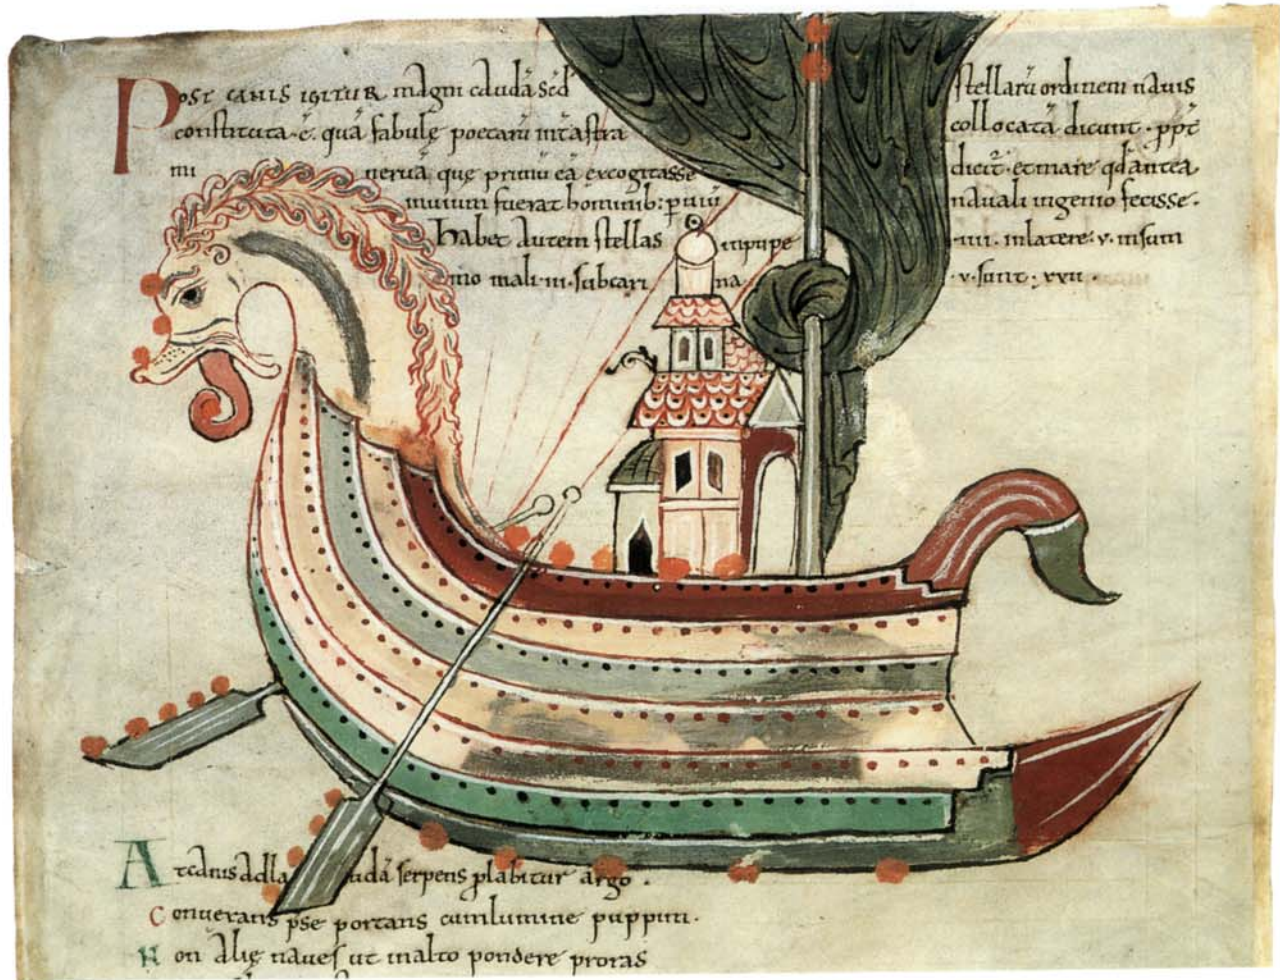 Post canis igitur magni caudā sed stellarū ordinem navis
constituta·ē· quā fabulę poetarū int̄ astra collocatā dicunt · ꝓpt̄
mi nervā quę primū eā excogitasse dicit̄ · et mare qd̄ antea
invium fuerat hominib: ꝑviū navali ingenio fecisse ·
habet autem stellas in pupe ·iiii· in latere ·v· in sum
mo mali ·iii· sub cari na ·v· sunt · xxii ·
At canis ad caudā serpens ꝓlabitur argo ·
Conversans ꝓse portans cum lumine puppim ·
Non alię naves ut in alto pondere proras